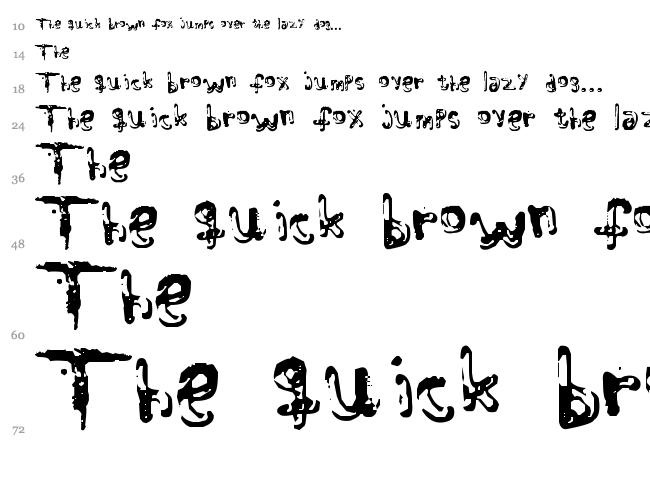 10 The quick brown fox jumps over the lazy dog...
14 The
18 The quick brown fox jumps over the lazy dog...
24 The quick brown fox jumps over the laz
36 The
48 The quick brown fo
60 The
72 The quick br